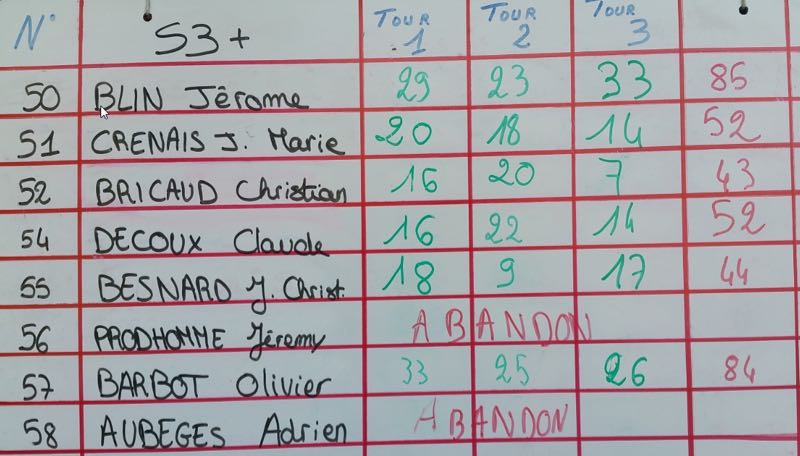 N° S3+ TOUR 1 TOUR 2 TOUR 3
50 BLIN Jérôme 29 23 33 85
51 CRENAIS J. Marie 20 18 14 52
52 BRICAUD Christian 16 20 7 43
54 DECOUX Claude 16 22 14 52
55 BESNARD J. Christ. 18 9 17 44
56 PRODHOMME Jéremy ABANDON
57 BARBOT Olivier 33 25 26 84
58 AUBEGES Adrien ABANDON